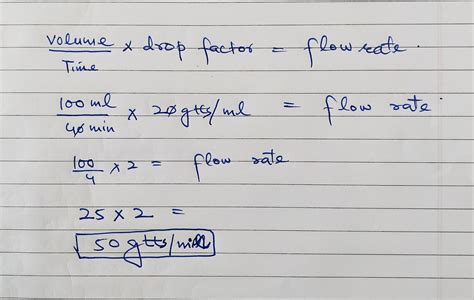 volume / Time × drop factor = flow rate.
100 ml / 40 min × 20 gtts/ml = flow rate.
100 / 4 × 2 = flow rate
25 × 2 =
50 gtts/min